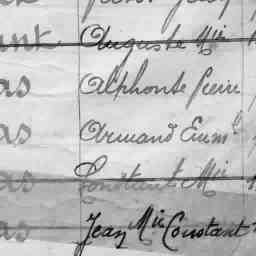 ant Auguste Mie
as Alphonse Pierre
as Armand Emm^l
as Constant Mie
as Jean Mie Constant